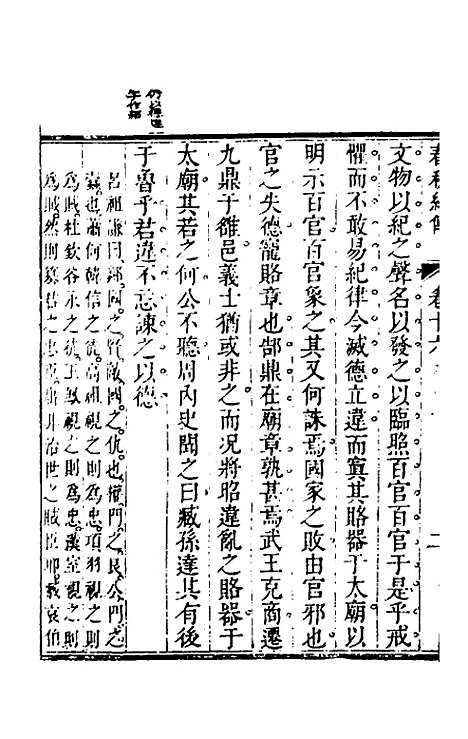 春秋經傳 卷十六 二
文物以紀之聲名以發之以臨照百官百官于是乎戒
懼而不敢易紀律今滅德立違而寘其賂器于太廟以
明示百官百官象之其又何誅焉國家之敗由官邪也
官之失德寵賂章也郜鼎在廟章孰甚焉武王克商遷
九鼎于雒邑義士猶或非之而况將昭違亂之賂器于
太廟其若之何公不聽周内史聞之曰臧孫達其有後
于魯乎君違不忘諫之以德
呂祖謙曰鄰國之賢敵國之仇也權門之良公門之
蠧也蕭何韓信之徒高祖視之則為忠項羽視之則
為賊杜欽谷永之徒王氏視之則為忠漢室視之則
為賊然則簒君之忠臣非治世之賊臣耶哀伯